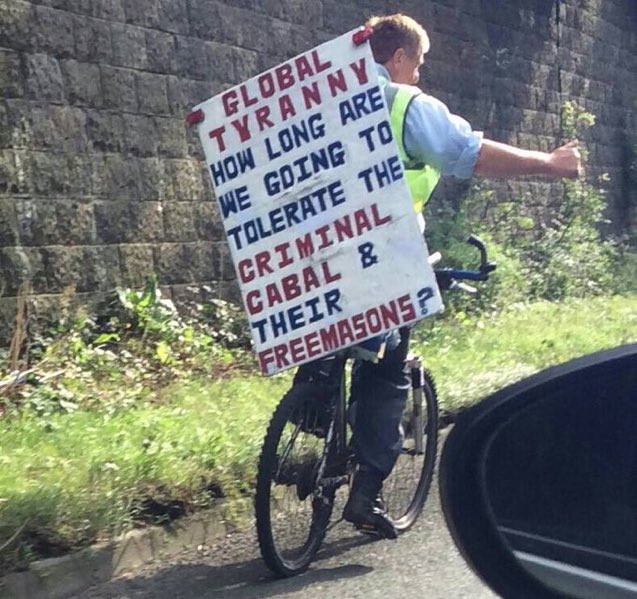 GLOBAL
TYRANNY
HOW LONG ARE
WE GOING TO
TOLERATE THE
CRIMINAL
CABAL &
THEIR
FREEMASONS?